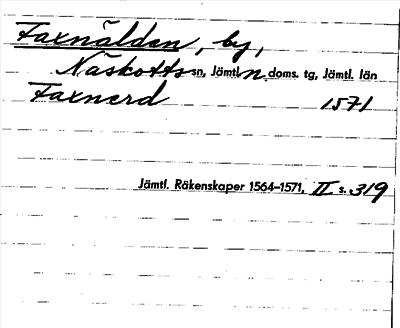 Faxnälden, by,
Näskotts sn, Jämtl. n doms. tg, Jämtl. län
Faxnerd 1571
Jämtl. Räkenskaper 1564-1571, II s. 319